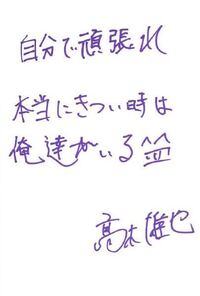 自分で頑張れ
本当にきつい時は
俺達がいる
高木雄也